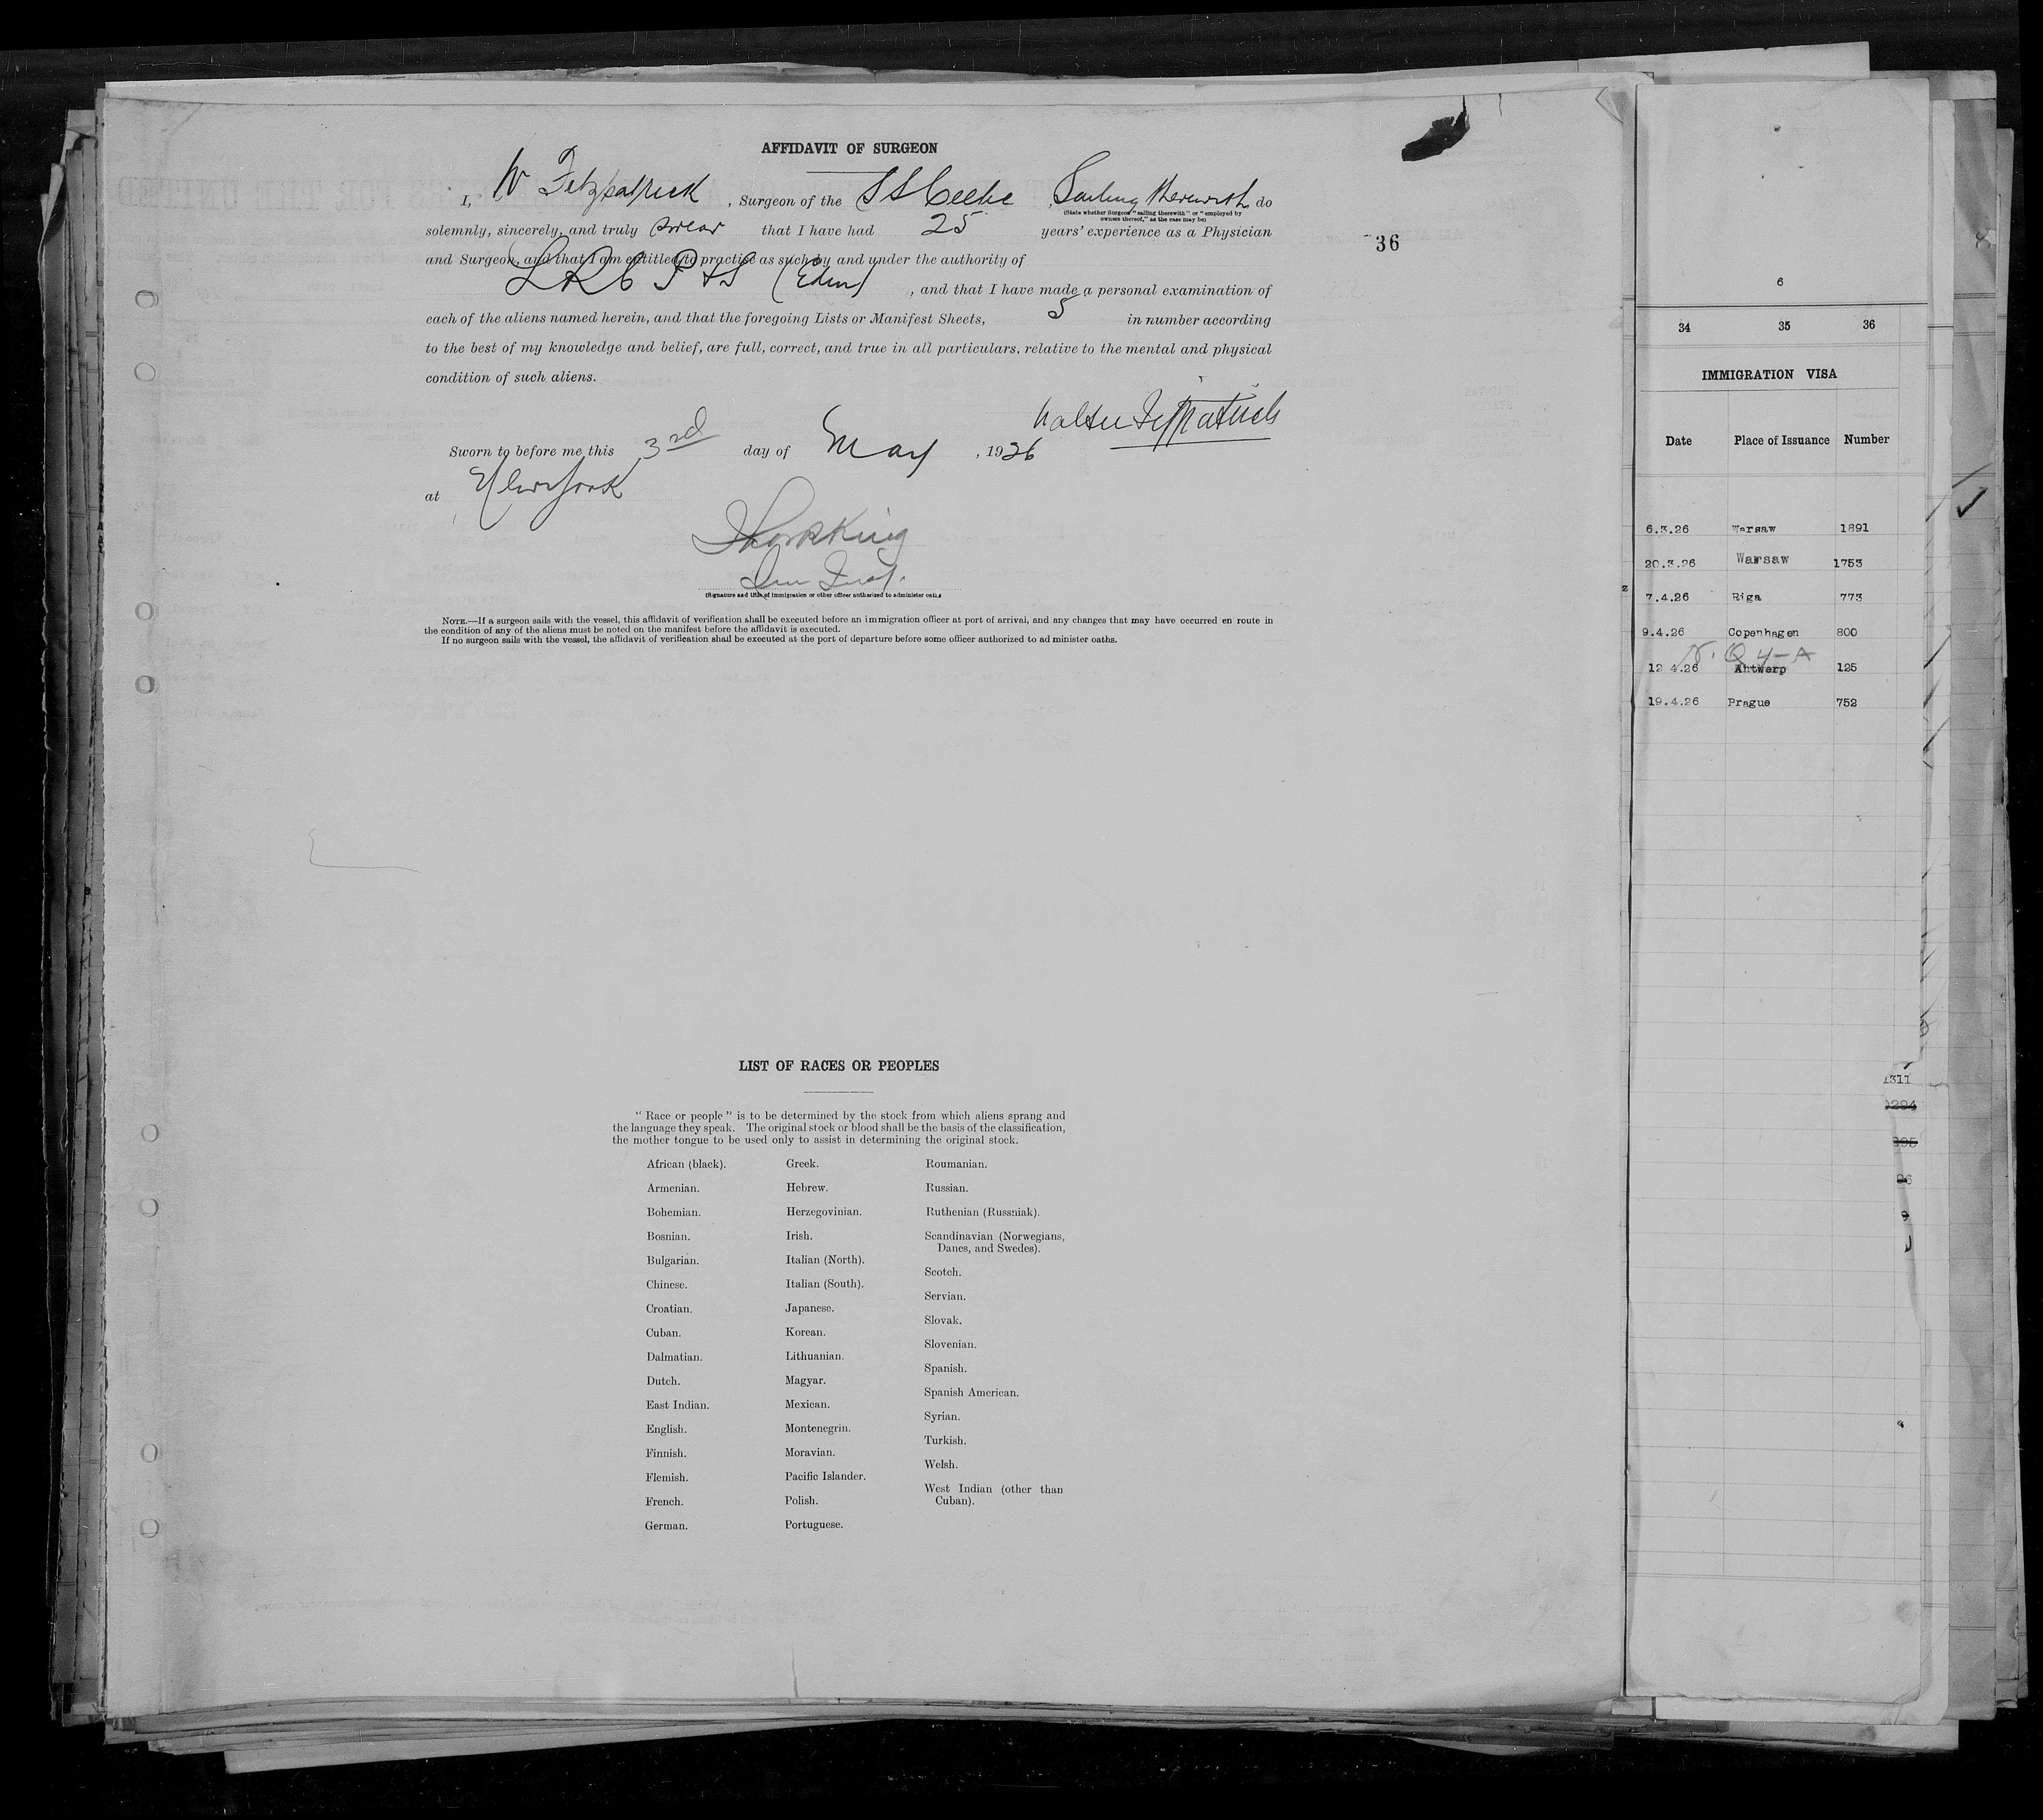 AFFIDAVIT OF SURGEON
I, W Fitzpatrick, Surgeon of the SS Celtic, Sailing therewith do
(State whether Surgeon "sailing therewith" or "employed by
owners thereof," as the case may be)
solemnly, sincerely, and truly swear that I have had 25 years' experience as a Physician
and Surgeon, and that I am entitled to practice as such by and under the authority of
LRC P & S (Edin), and that I have made a personal examination of
each of the aliens named herein, and that the foregoing Lists or Manifest Sheets, 5 in number according
to the best of my knowledge and belief, are full, correct, and true in all particulars, relative to the mental and physical
condition of such aliens.
Walter Fitzpatrick
Sworn to before me this 3rd day of May, 1926
at New York
Imm Insp.
(Signature and title of immigration or other officer authorized to administer oaths
NOTE.—If a surgeon sails with the vessel, this affidavit of verification shall be executed before an immigration officer at port of arrival, and any changes that may have occurred en route in
the condition of any of the aliens must be noted on the manifest before the affidavit is executed.
If no surgeon sails with the vessel, the affidavit of verification shall be executed at the port of departure before some officer authorized to ad minister oaths.
36
LIST OF RACES OR PEOPLES
"Race or people" is to be determined by the stock from which aliens sprang and
the language they speak. The original stock or blood shall be the basis of the classification,
the mother tongue to be used only to assist in determining the original stock.
African (black).
Armenian.
Bohemian.
Bosnian.
Bulgarian.
Chinese.
Croatian.
Cuban.
Dalmatian.
Dutch.
East Indian.
English.
Finnish.
Flemish.
French.
German.
Greek.
Hebrew.
Herzegovinian.
Irish.
Italian (North).
Italian (South).
Japanese.
Korean.
Lithuanian.
Magyar.
Mexican.
Montenegrin.
Moravian.
Pacific Islander.
Polish.
Portuguese.
Roumanian.
Russian.
Ruthenian (Russniak).
Scandinavian (Norwegians,
Danes, and Swedes).
Scotch.
Servian.
Slovak.
Slovenian.
Spanish.
Spanish American.
Syrian.
Turkish.
Welsh.
West Indian (other than
Cuban).
6
34 35 36
IMMIGRATION VISA
Date Place of Issuance Number
6.3.26 Warsaw 1891
20.3.26 Warsaw 1753
7.4.26 Riga 773
9.4.26 Copenhagen 800
N.Q 4-A
12 4.26 Antwerp 125
19.4.26 Prague 752